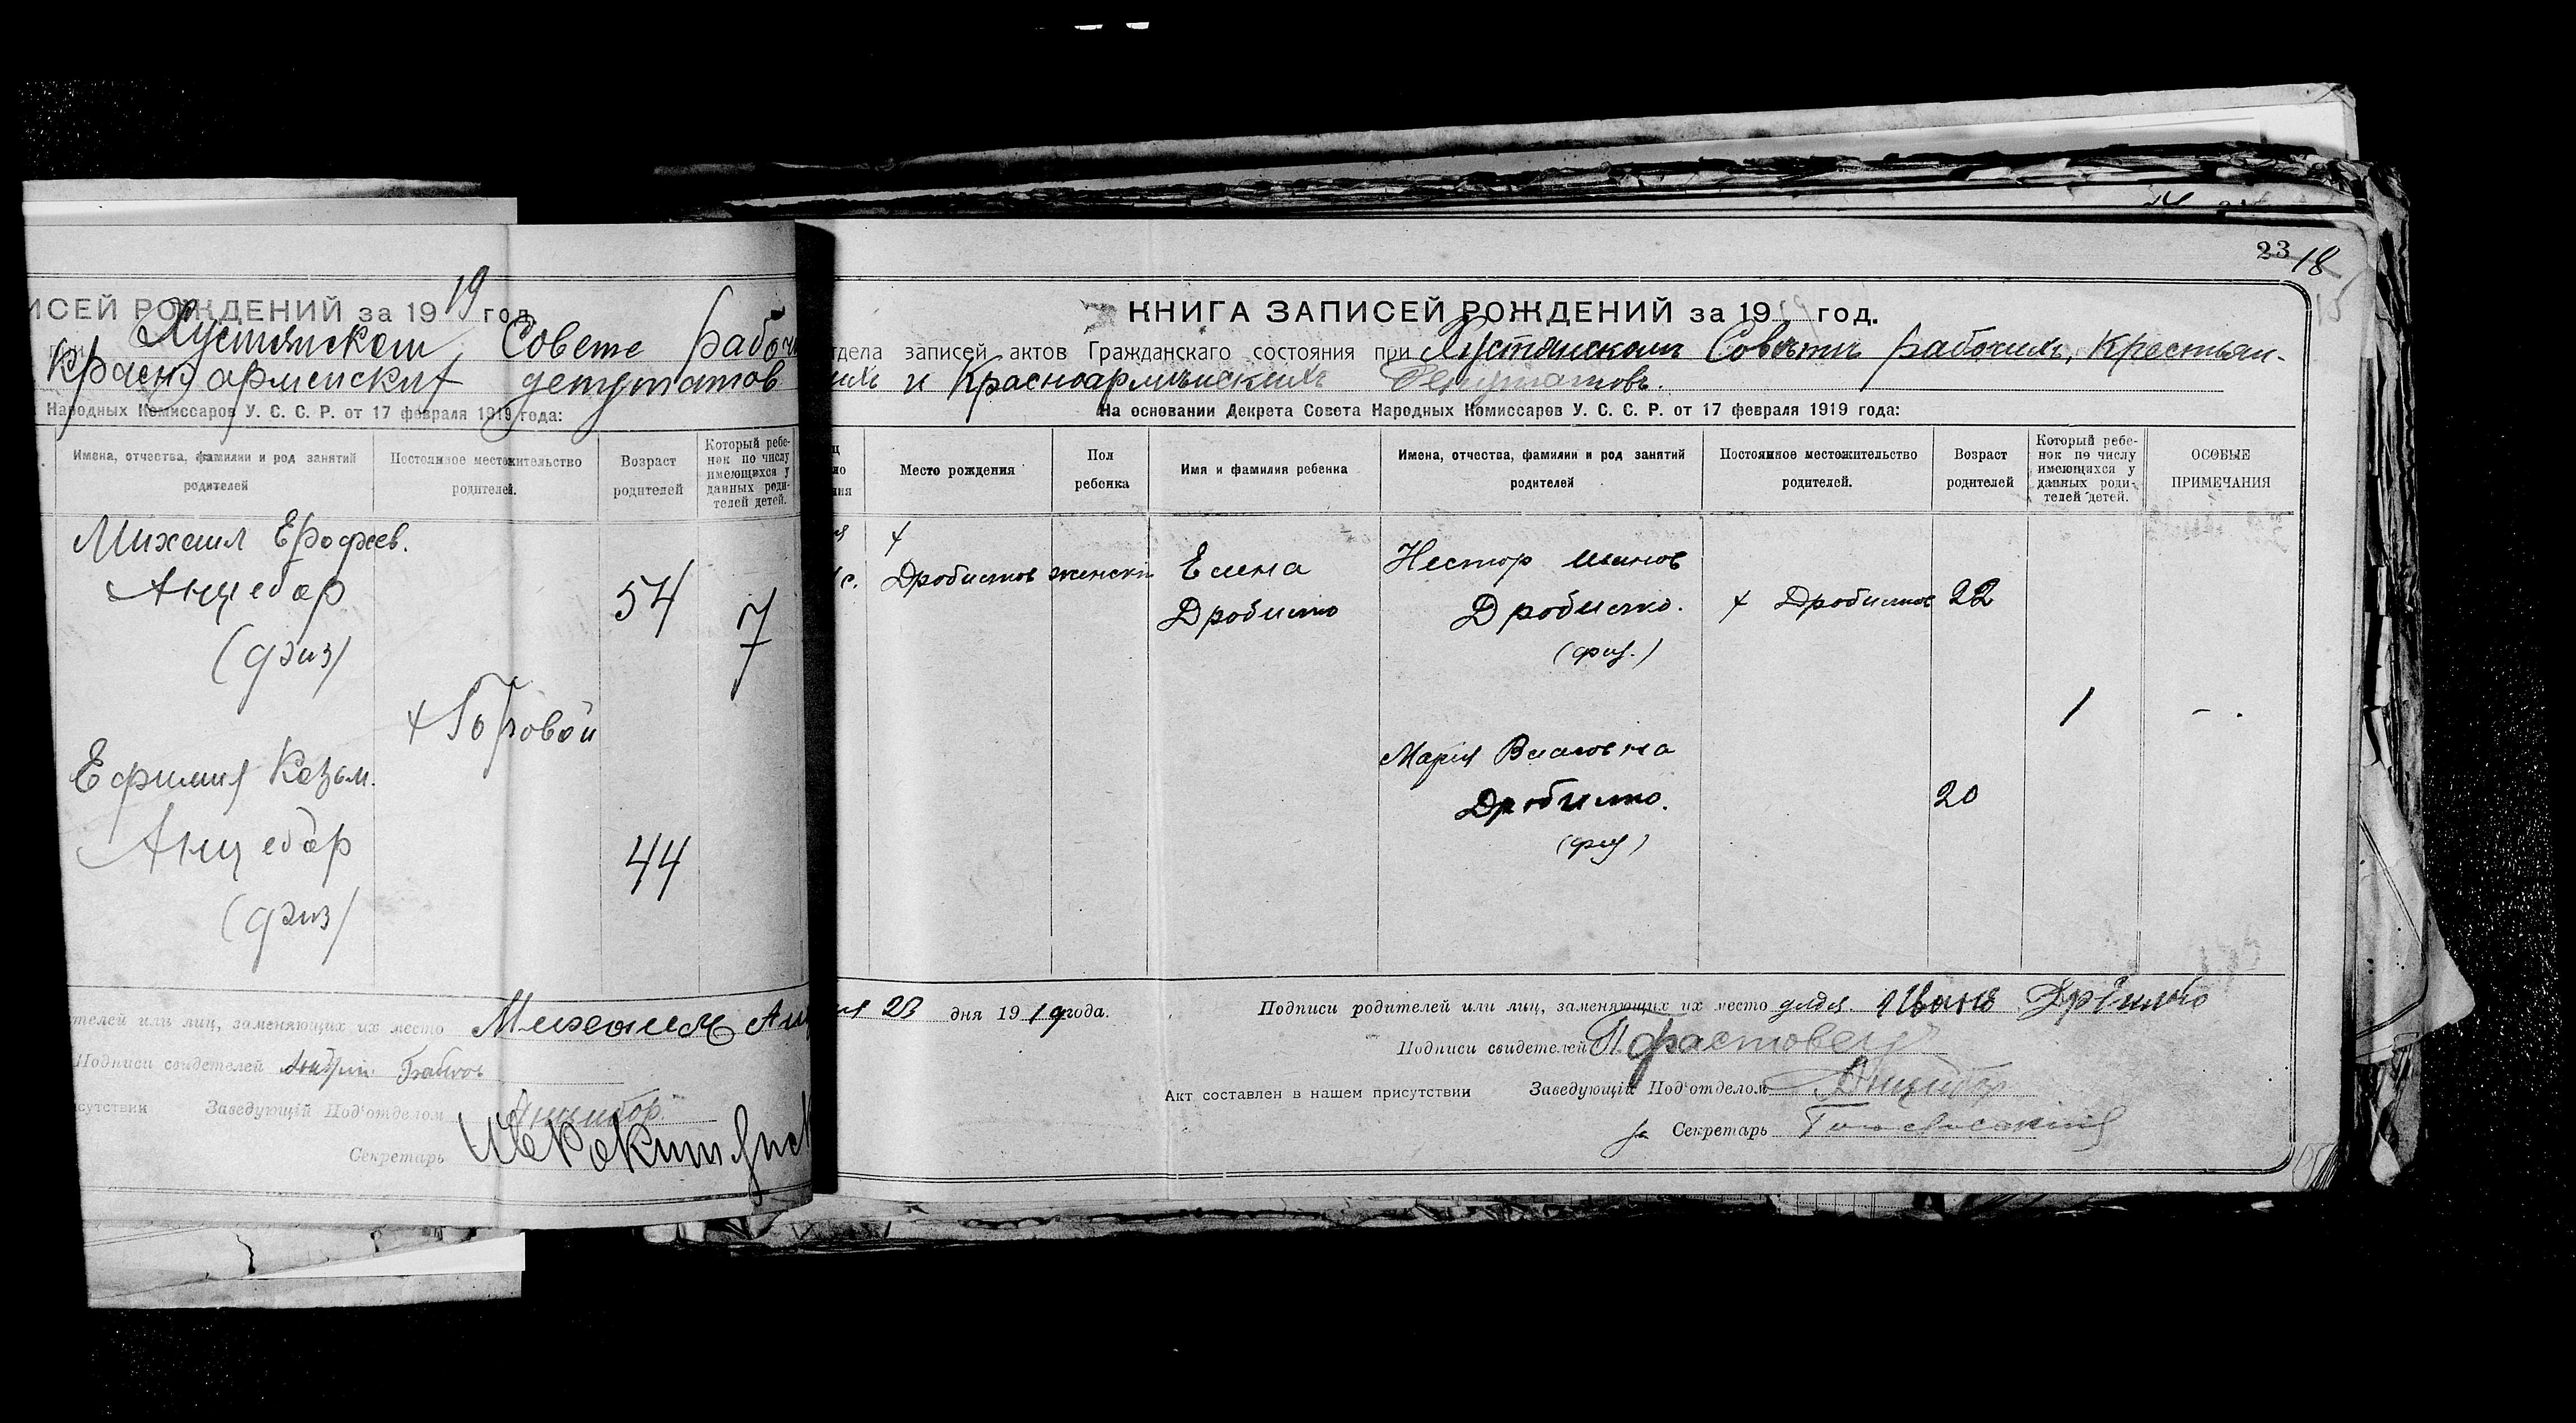 ИСЕЙ РОЖДЕНИЙ за 1919 год
Хустянском Совете рабоч
Красно армейских депутатов
Народных Комиссаров У. С. С. Р. от 17 февраля 1919 года:
Имена, отчества, фамилии и род занятий родителей
Постоянное местожительство родителей.
Возраст родителей
Который ребе-
нок по числу
имеющихся у
данных роди-
телей детей.
Михаил Ерофеев.
Анцебар
54
7
(физ)
х Боровой
Ефимия Козьм.
Анцебар
44
(физ)
телей или лиц, заменяющих их место Михаилъ
Подписи свидетелей Андрій
сутствии Заведующій Под'отделом Анцибор
Секретарь
23 18
15
КНИГА ЗАПИСЕЙ РОЖДЕНИЙ за 1919 год.
тдела записей актов Гражданскаго состояния при Хустянскомъ Совѣтѣ рабочихъ, Крестьян-
ихъ и Красноармѣйскихъ Депутатовъ.
На основании Декрета Совета Народных Комиссаров У. С. С. Р. от 17 февраля 1919 года:
Место рождения
Пол ребенка
Имя и фамилия ребенка
Имена, отчества, фамилии и род занятий родителей
Постоянное местожительство родителей.
Возраст родителей
Который ребе-
нок по числу
имеющихся у
данных роди-
телей детей.
ОСОБЫЕ ПРИМЕЧАНИЯ
х
Дробишов женски Елена Нестор Иванов
Дробишко Дробишко. х Дробишов 22
(физ.)
1 -.
Мария Власовна
Дробишко. 20
(физ)
23 дня 1919 года.
Подписи родителей или лиц, заменяющих их место дядя. Иванъ Дробишко
Подписи свидетелей П. Фастовец
Акт составлен в нашем присутствии Заведующій Под'отделом Анцибор
за Секретарь